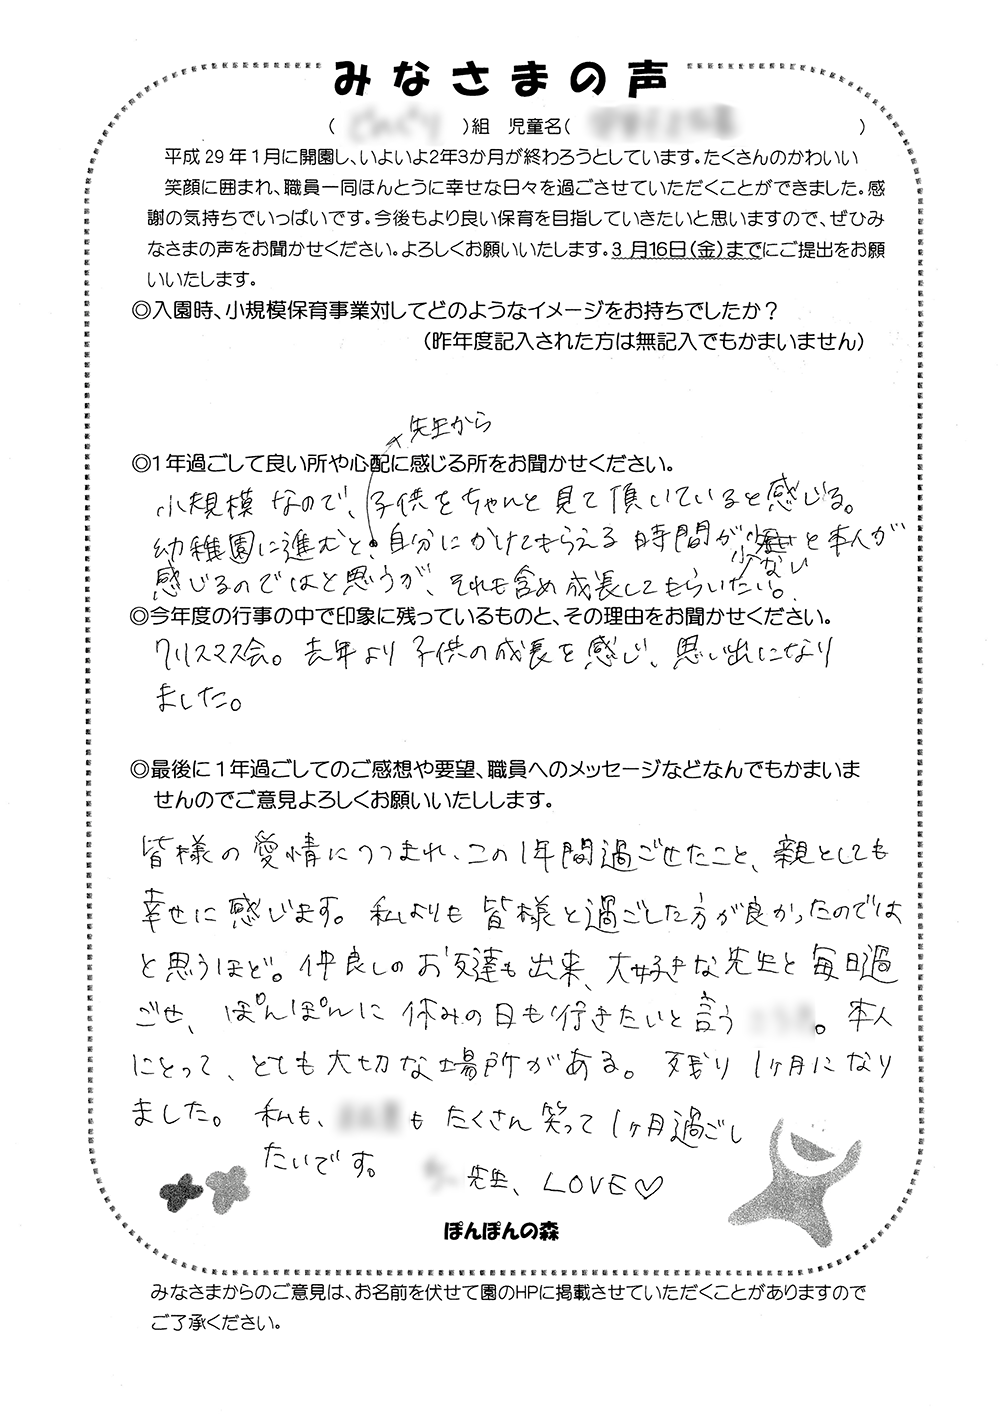 みなさまの声
(　)組　児童名(　)
平成29年1月に開園し、いよいよ2年3か月が終わろうとしています。たくさんのかわいい
笑顔に囲まれ、職員一同ほんとうに幸せな日々を過ごさせていただくことができました。感
謝の気持ちでいっぱいです。今後もより良い保育を目指していきたいと思いますので、ぜひみ
なさまの声をお聞かせください。よろしくお願いいたします。3月16日(金)までにご提出をお願
いいたします。
◎入園時、小規模保育事業対してどのようなイメージをお持ちでしたか？
(昨年度記入された方は無記入でもかまいません)
先生から
◎1年過ごして良い所や心配に感じる所をお聞かせください。
小規模なので、子供をちゃんと見て頂いていると感じる。
幼稚園に進むと、自分にかけてもらえる時間が と本人が
少ない
感じるのではと思うが、それも含め成長してもらいたい。
◎今年度の行事の中で印象に残っているものと、その理由をお聞かせください。
クリスマス会。去年より子供の成長を感じ、思い出になり
ました。
◎最後に1年過ごしてのご感想や要望、職員へのメッセージなどなんでもかまいま
せんのでご意見よろしくお願いいたしします。
皆様の愛情につつまれ、この1年間過ごせたこと、親としても
幸せに感じます。私よりも皆様と過ごした方が良かったのでは
と思うほど。仲良しのお友達も出来、大好きな先生と毎日過
ごせ、ぽんぽんに休みの日も行きたいと言う 。本人
にとって、とても大切な場所がある。残り1ヶ月になり
ました。私も、 もたくさん笑って1ヶ月過ごし
たいです。
先生、LOVE♡
ぽんぽんの森
みなさまからのご意見は、お名前を伏せて園のHPに掲載させていただくことがありますので
ご了承ください。